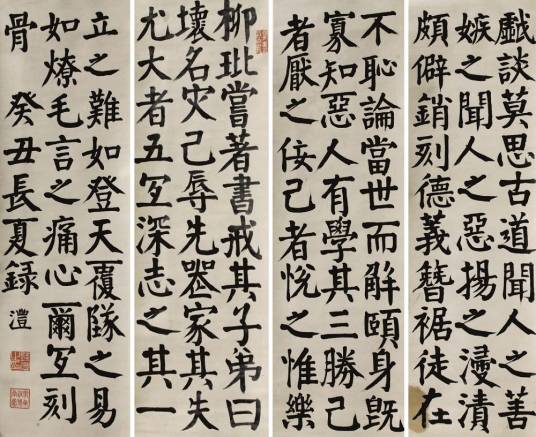 戲談莫思古道聞人之善
嫉之聞人之惡揚之浸漬
頗僻銷刻德義簪裾徒在
不恥論當世而解頤身既
寡知惡人有學其三勝己
者厭之佞己者悅之惟樂
柳玭嘗著書戒其子弟曰
壞名灾己辱先喪家其失
尤大者五宜深志之其一
立之難如登天覆隊之易
如燎毛言之痛心爾宜刻
骨 癸丑長夏錄 澧